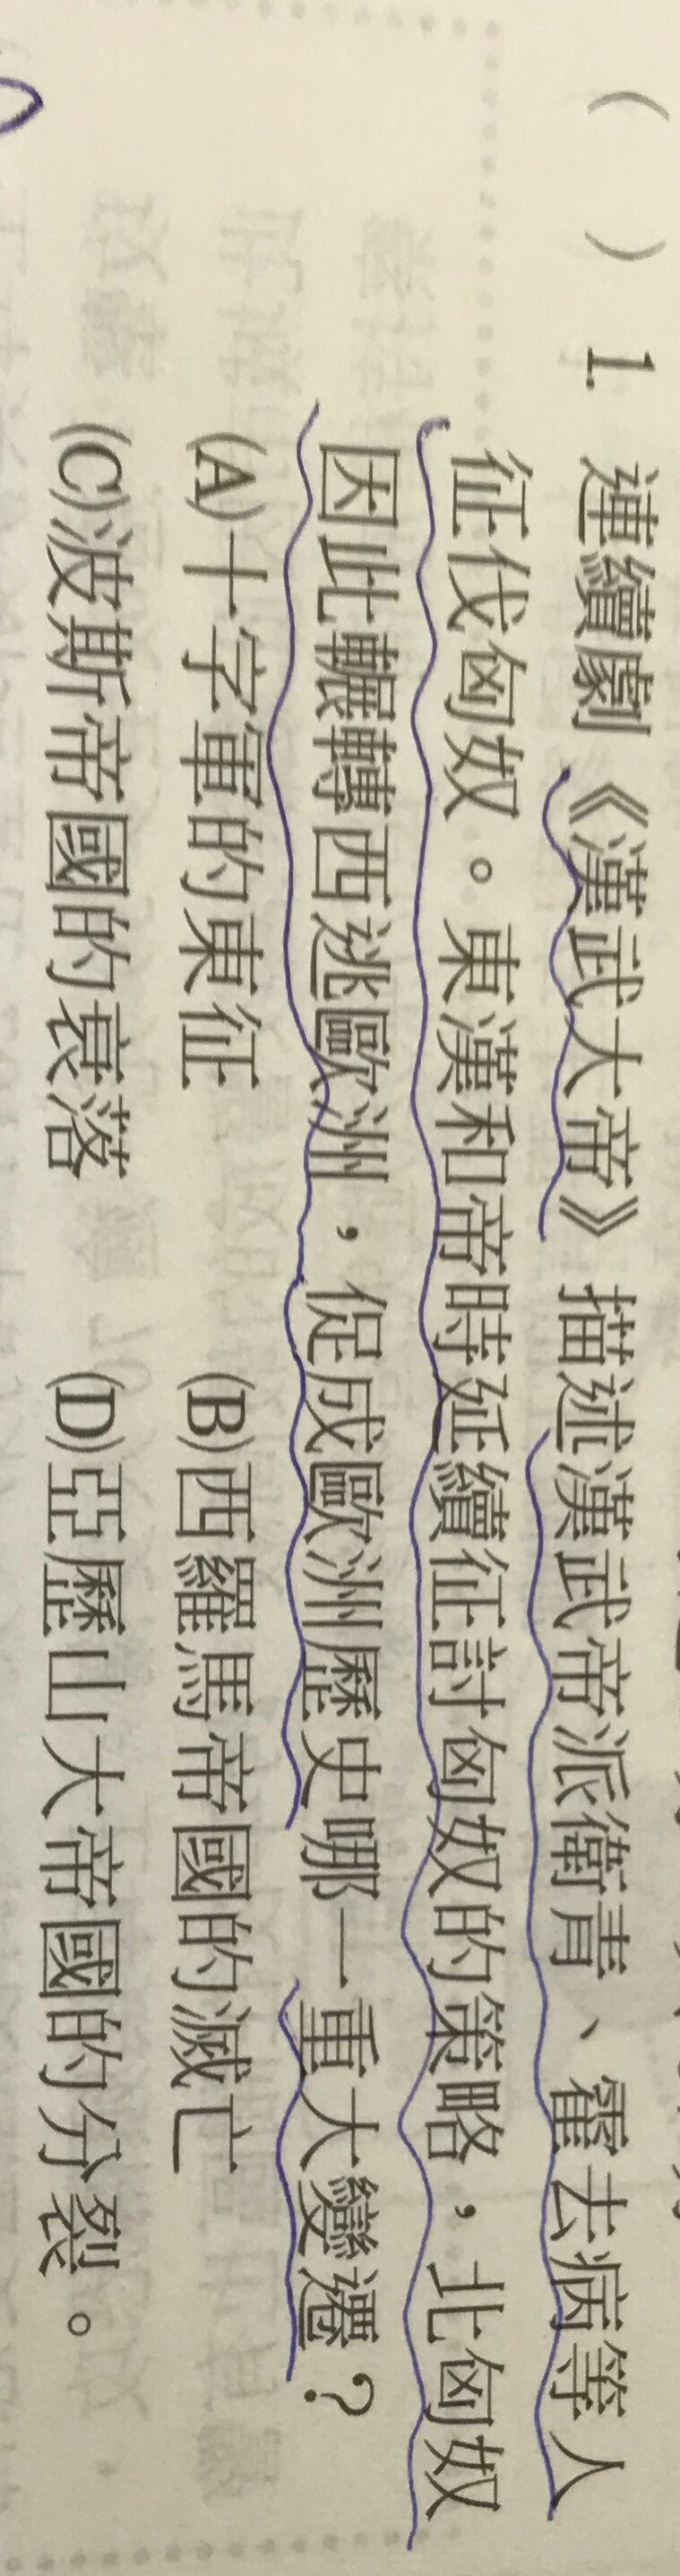 ( ) 1. 連續劇《漢武大帝》描述漢武帝派衛青、霍去病等人
征伐匈奴。東漢和帝時延續征討匈奴的策略，北匈奴
因此輾轉西逃歐洲，促成歐洲歷史哪一重大變遷？
(A)十字軍的東征 (B)西羅馬帝國的滅亡
(C)波斯帝國的衰落 (D)亞歷山大帝國的分裂。